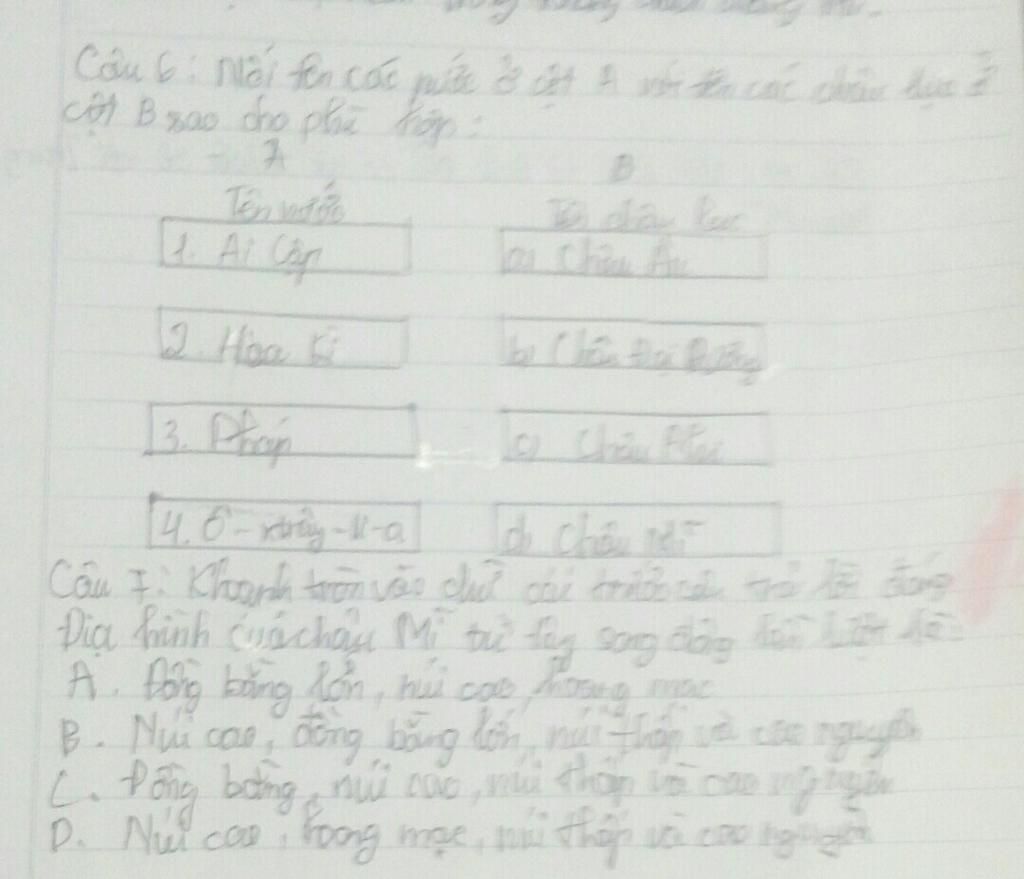 Câu 6: Nối tên các nước ở cột A với tên các châu lục ở
cột B sao cho phù hợp:
A B
Tên nước Tên châu lục
1. Ai Cập a) Châu Âu
2. Hoa Kì b) Châu Đại Dương
3. Pháp c) Châu Phi
4. Ô-xtrây-li-a d) Châu Mĩ
Câu 7: Khoanh tròn vào chữ cái trước câu trả lời đúng
Địa hình của châu Mĩ từ tây sang đông lần lượt là:
A. Đồng bằng lớn, núi cao, hoang mạc
B. Núi cao, đồng bằng lớn, núi thấp và cao nguyên
C. Đồng bằng, núi cao, núi thấp và cao nguyên
D. Núi cao, hoang mạc, núi thấp và cao nguyên